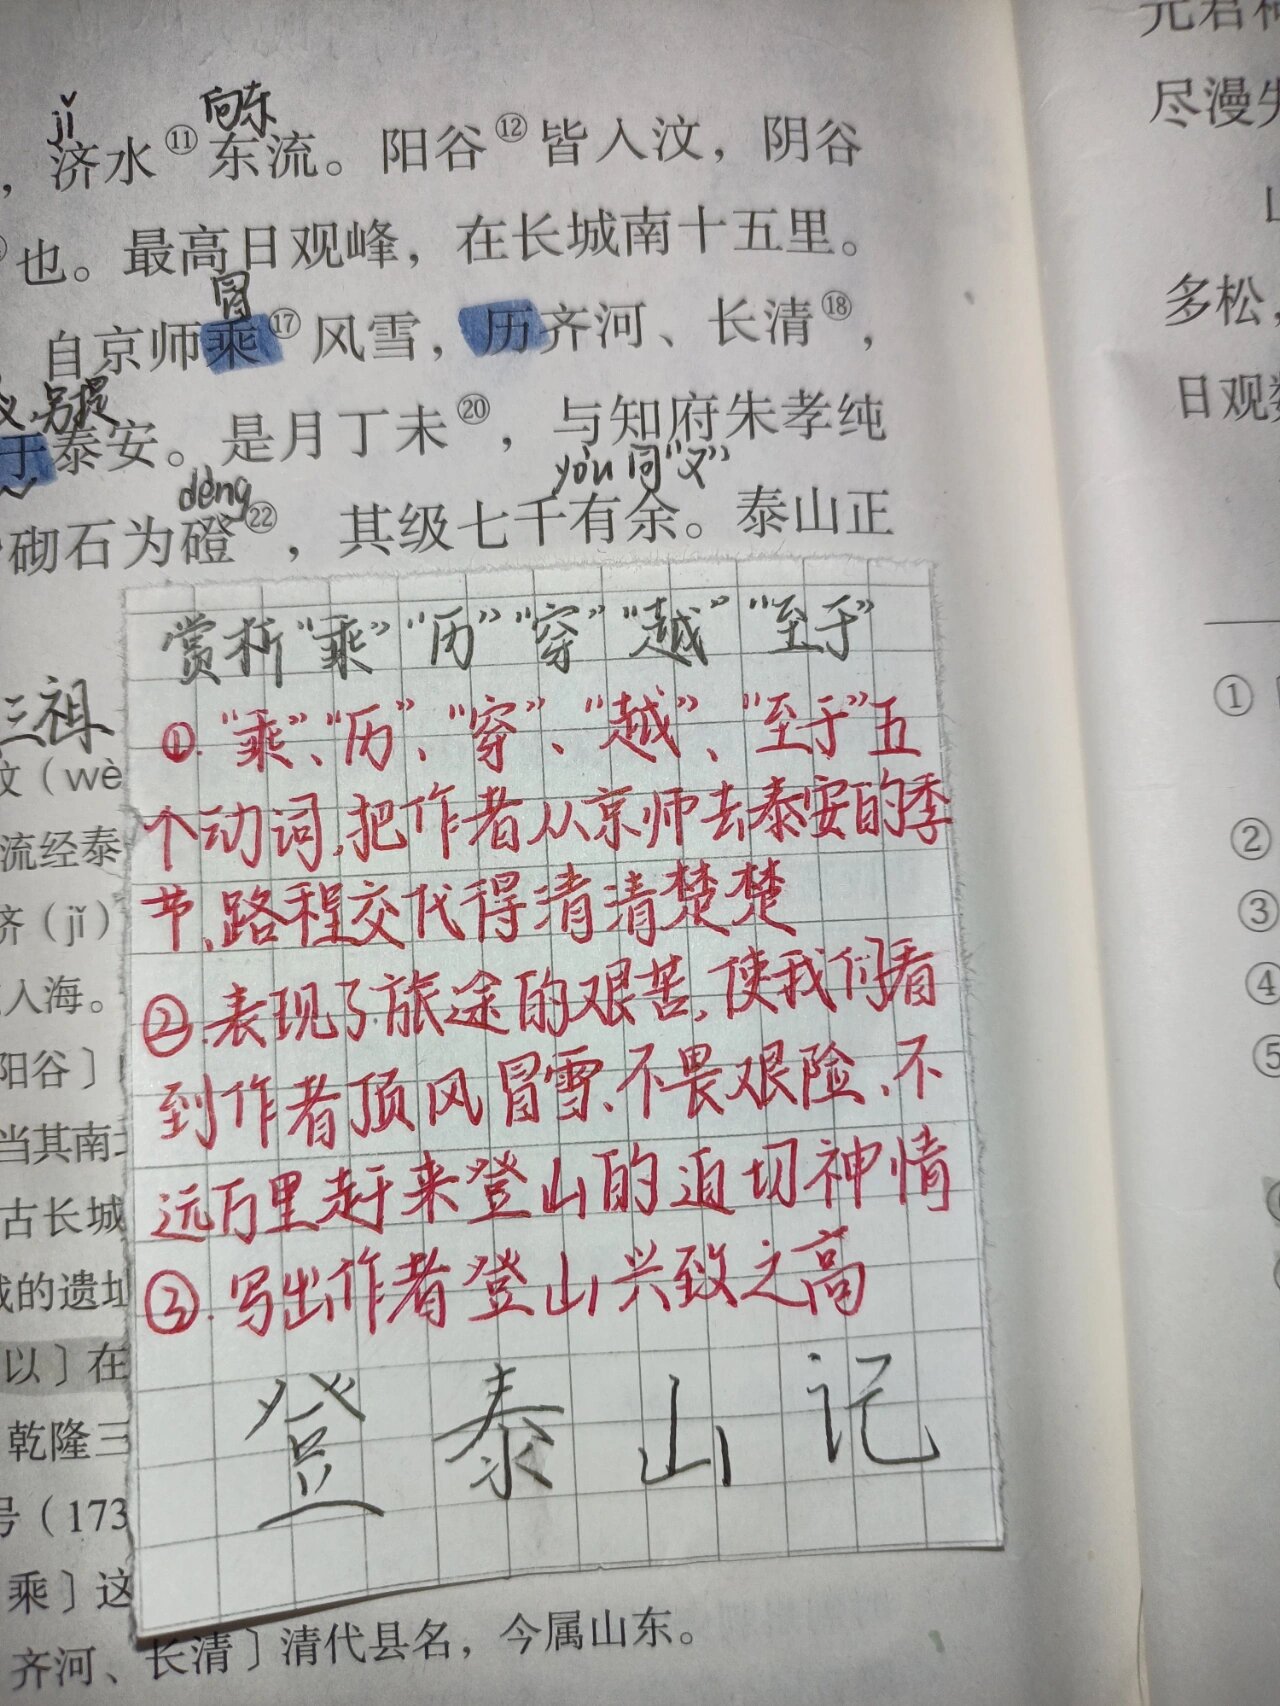 元君祠
尽漫失
多松，
日观数
①
②
③
④
⑤
jǐ
向东
，济水⑪东流。阳谷⑫皆入汶，阴谷
也。最高日观峰，在长城南十五里。
冒
自京师乘⑰风雪，历齐河、长清⑱，
义 另提
于泰安。是月丁未⑳，与知府朱孝纯
dèng
yòu 同“又”
砌石为磴㉒，其级七千有余。泰山正
赏析“乘”“历”“穿”“越”“至于”
①.“乘”、“历”、“穿”、“越”、“至于”五
个动词,把作者从京师去泰安的季
节、路程交代得清清楚楚
②.表现了旅途的艰苦,使我们看
到作者顶风冒雪、不畏艰险、不
远万里赶来登山的迫切神情
③.写出作者登山兴致之高
登泰山记
三祖
汶（wè
流经泰
济（jǐ）
入海。
阳谷〕
当其南北
古长城
的遗址
以〕在
乾隆三
号（173
乘〕这
齐河、长清〕清代县名，今属山东。